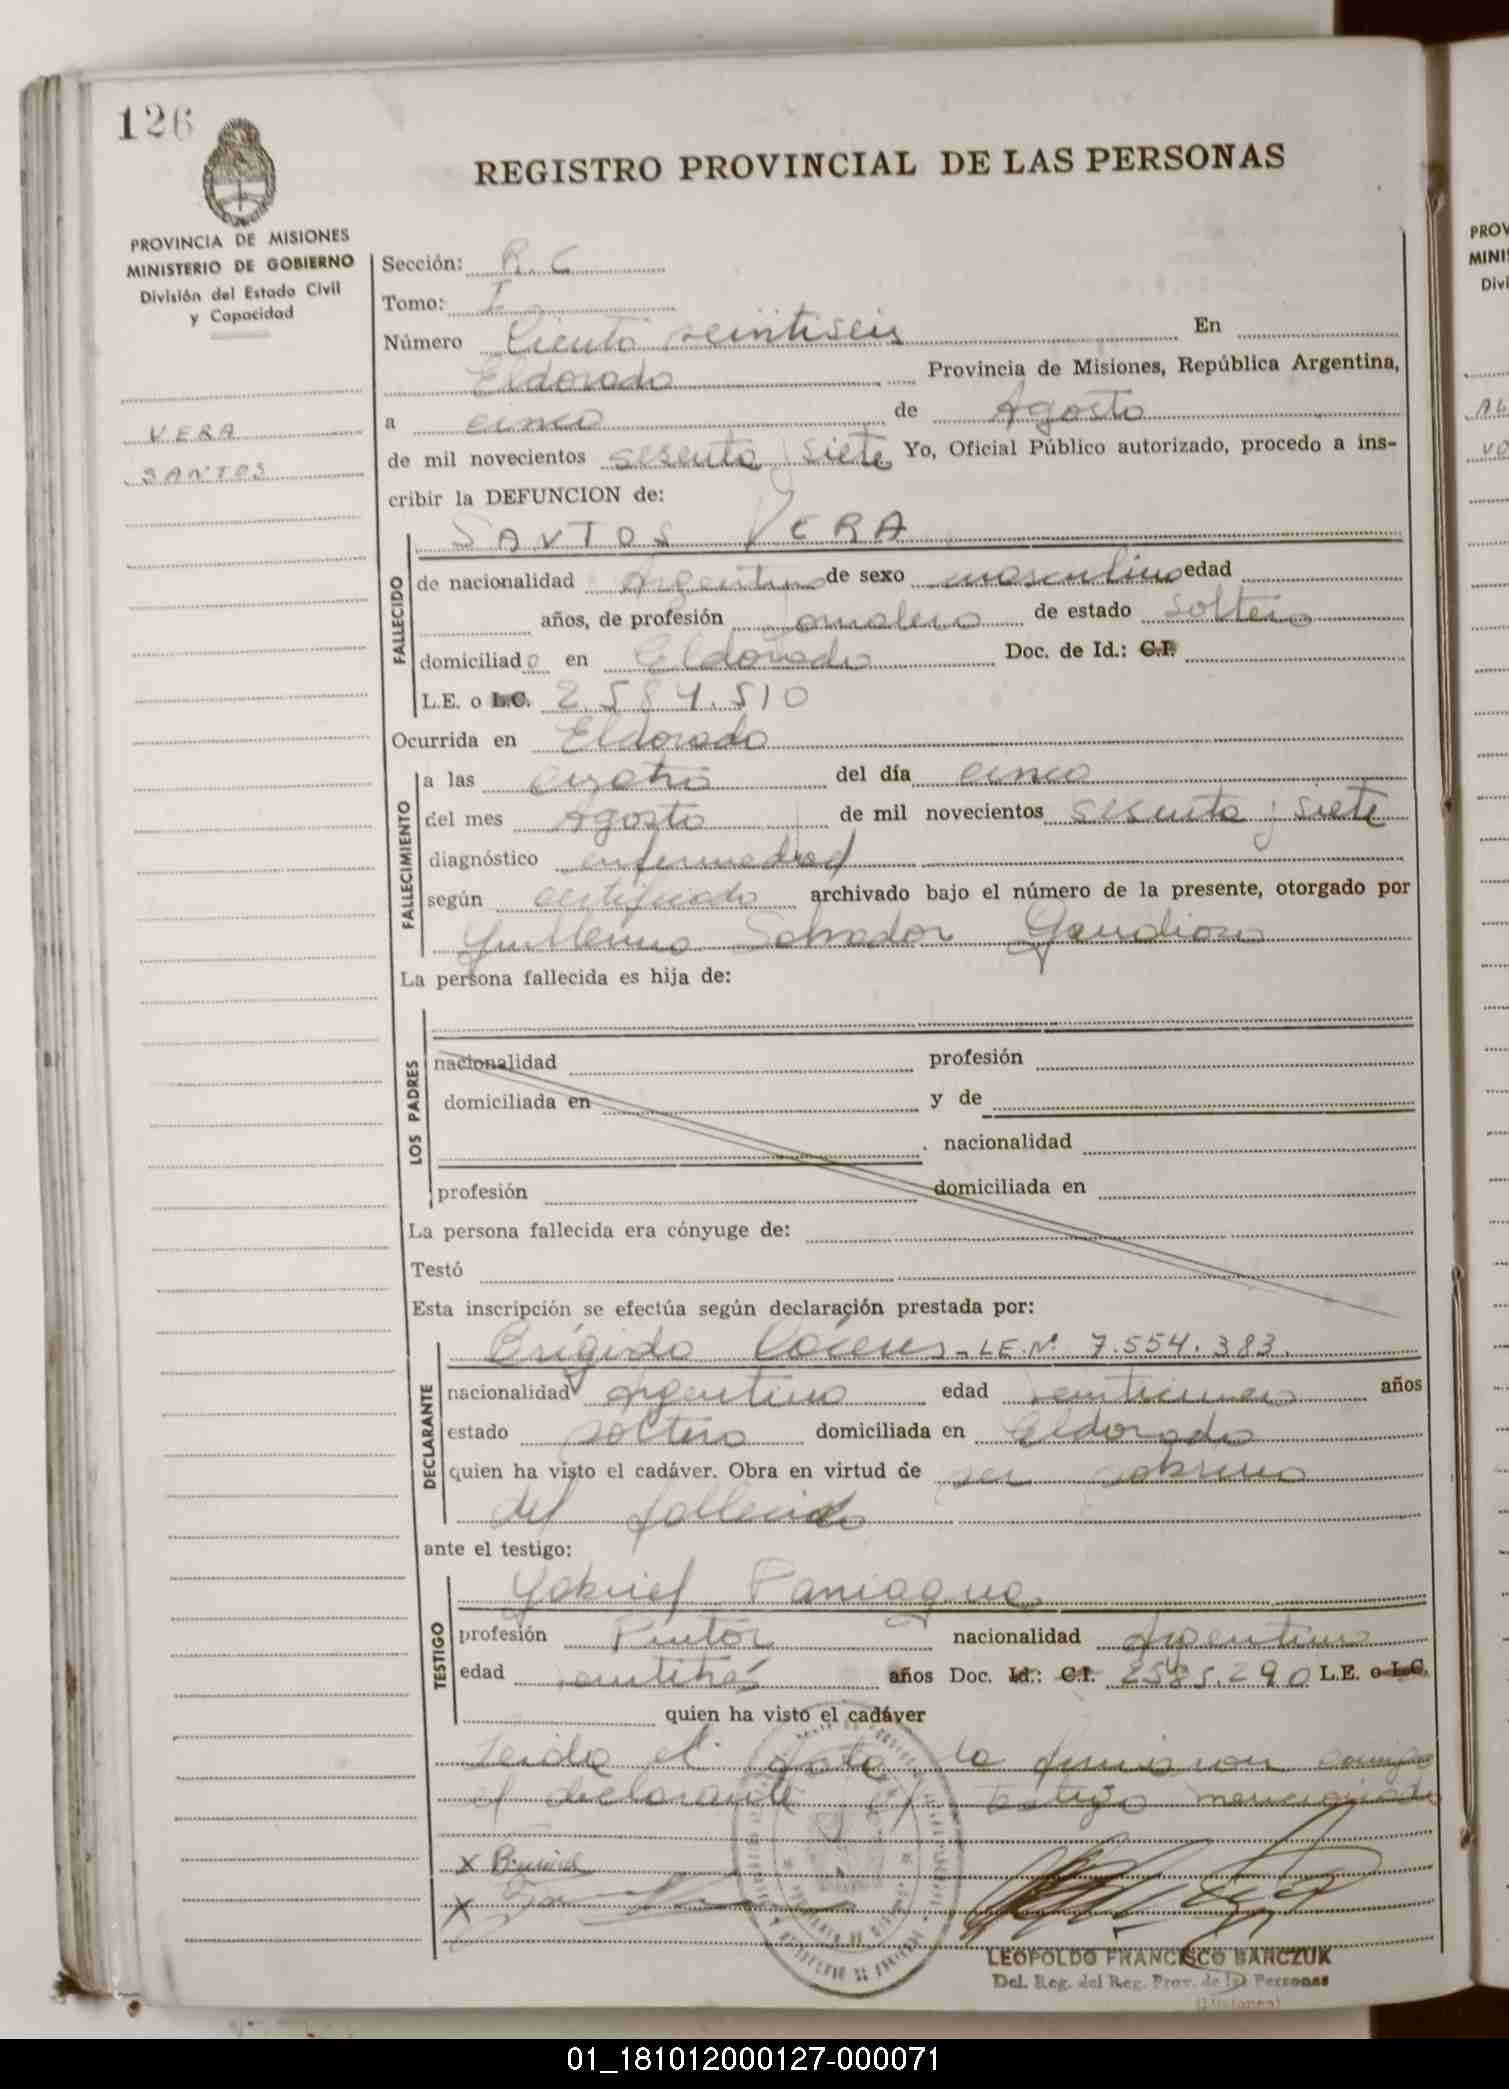 126
REGISTRO PROVINCIAL DE LAS PERSONAS
PROVINCIA DE MISIONES
MINISTERIO DE GOBIERNO
División del Estado Civil
y Capacidad
VERA
SANTOS
Sección: R.C
Tomo: I
Número Ciento veintiseis En
Eldorado Provincia de Misiones, República Argentina,
a cinco de Agosto
de mil novecientos sesenta y siete Yo, Oficial Público autorizado, procedo a ins-
cribir la DEFUNCION de:
FALLECIDO
SANTOS VERA
de nacionalidad Argentino de sexo masculino edad
años, de profesión Jornalero de estado soltero
domiciliado en Eldorado Doc. de Id.: C.I.
L.E. o L.C. 2.584.510
Ocurrida en Eldorado
FALLECIMIENTO
a las cuatro del día cinco
del mes Agosto de mil novecientos sesenta y siete
diagnóstico enfermedad
según certificado archivado bajo el número de la presente, otorgado por
Guillermo Salvador
La persona fallecida es hija de:
LOS PADRES
nacionalidad profesión
domiciliada en y de
nacionalidad
profesión domiciliada en
La persona fallecida era cónyuge de:
Testó
Esta inscripción se efectúa según declaración prestada por:
DECLARANTE
Brígido LE.Nº 7.554.383.
nacionalidad Argentino edad años
estado soltero domiciliada en Eldorado
quien ha visto el cadáver. Obra en virtud de ser sobrino
del fallecido
ante el testigo:
TESTIGO
Gabriel Paniagua
profesión Pintor nacionalidad Argentino
edad veintitrés años Doc. Id.: C.I. 2585.290 L.E. o L.C.
quien ha visto el cadáver
Leida el acta, la firman conmigo
el declarante y testigo mencionado
x
x
LEOPOLDO FRANCISCO BARCZUK
Del. Reg. del Reg. Prov. de las Personas
(Misiones)
PROV
MINIS
Divi
AL
VO
01_181012000127-000071